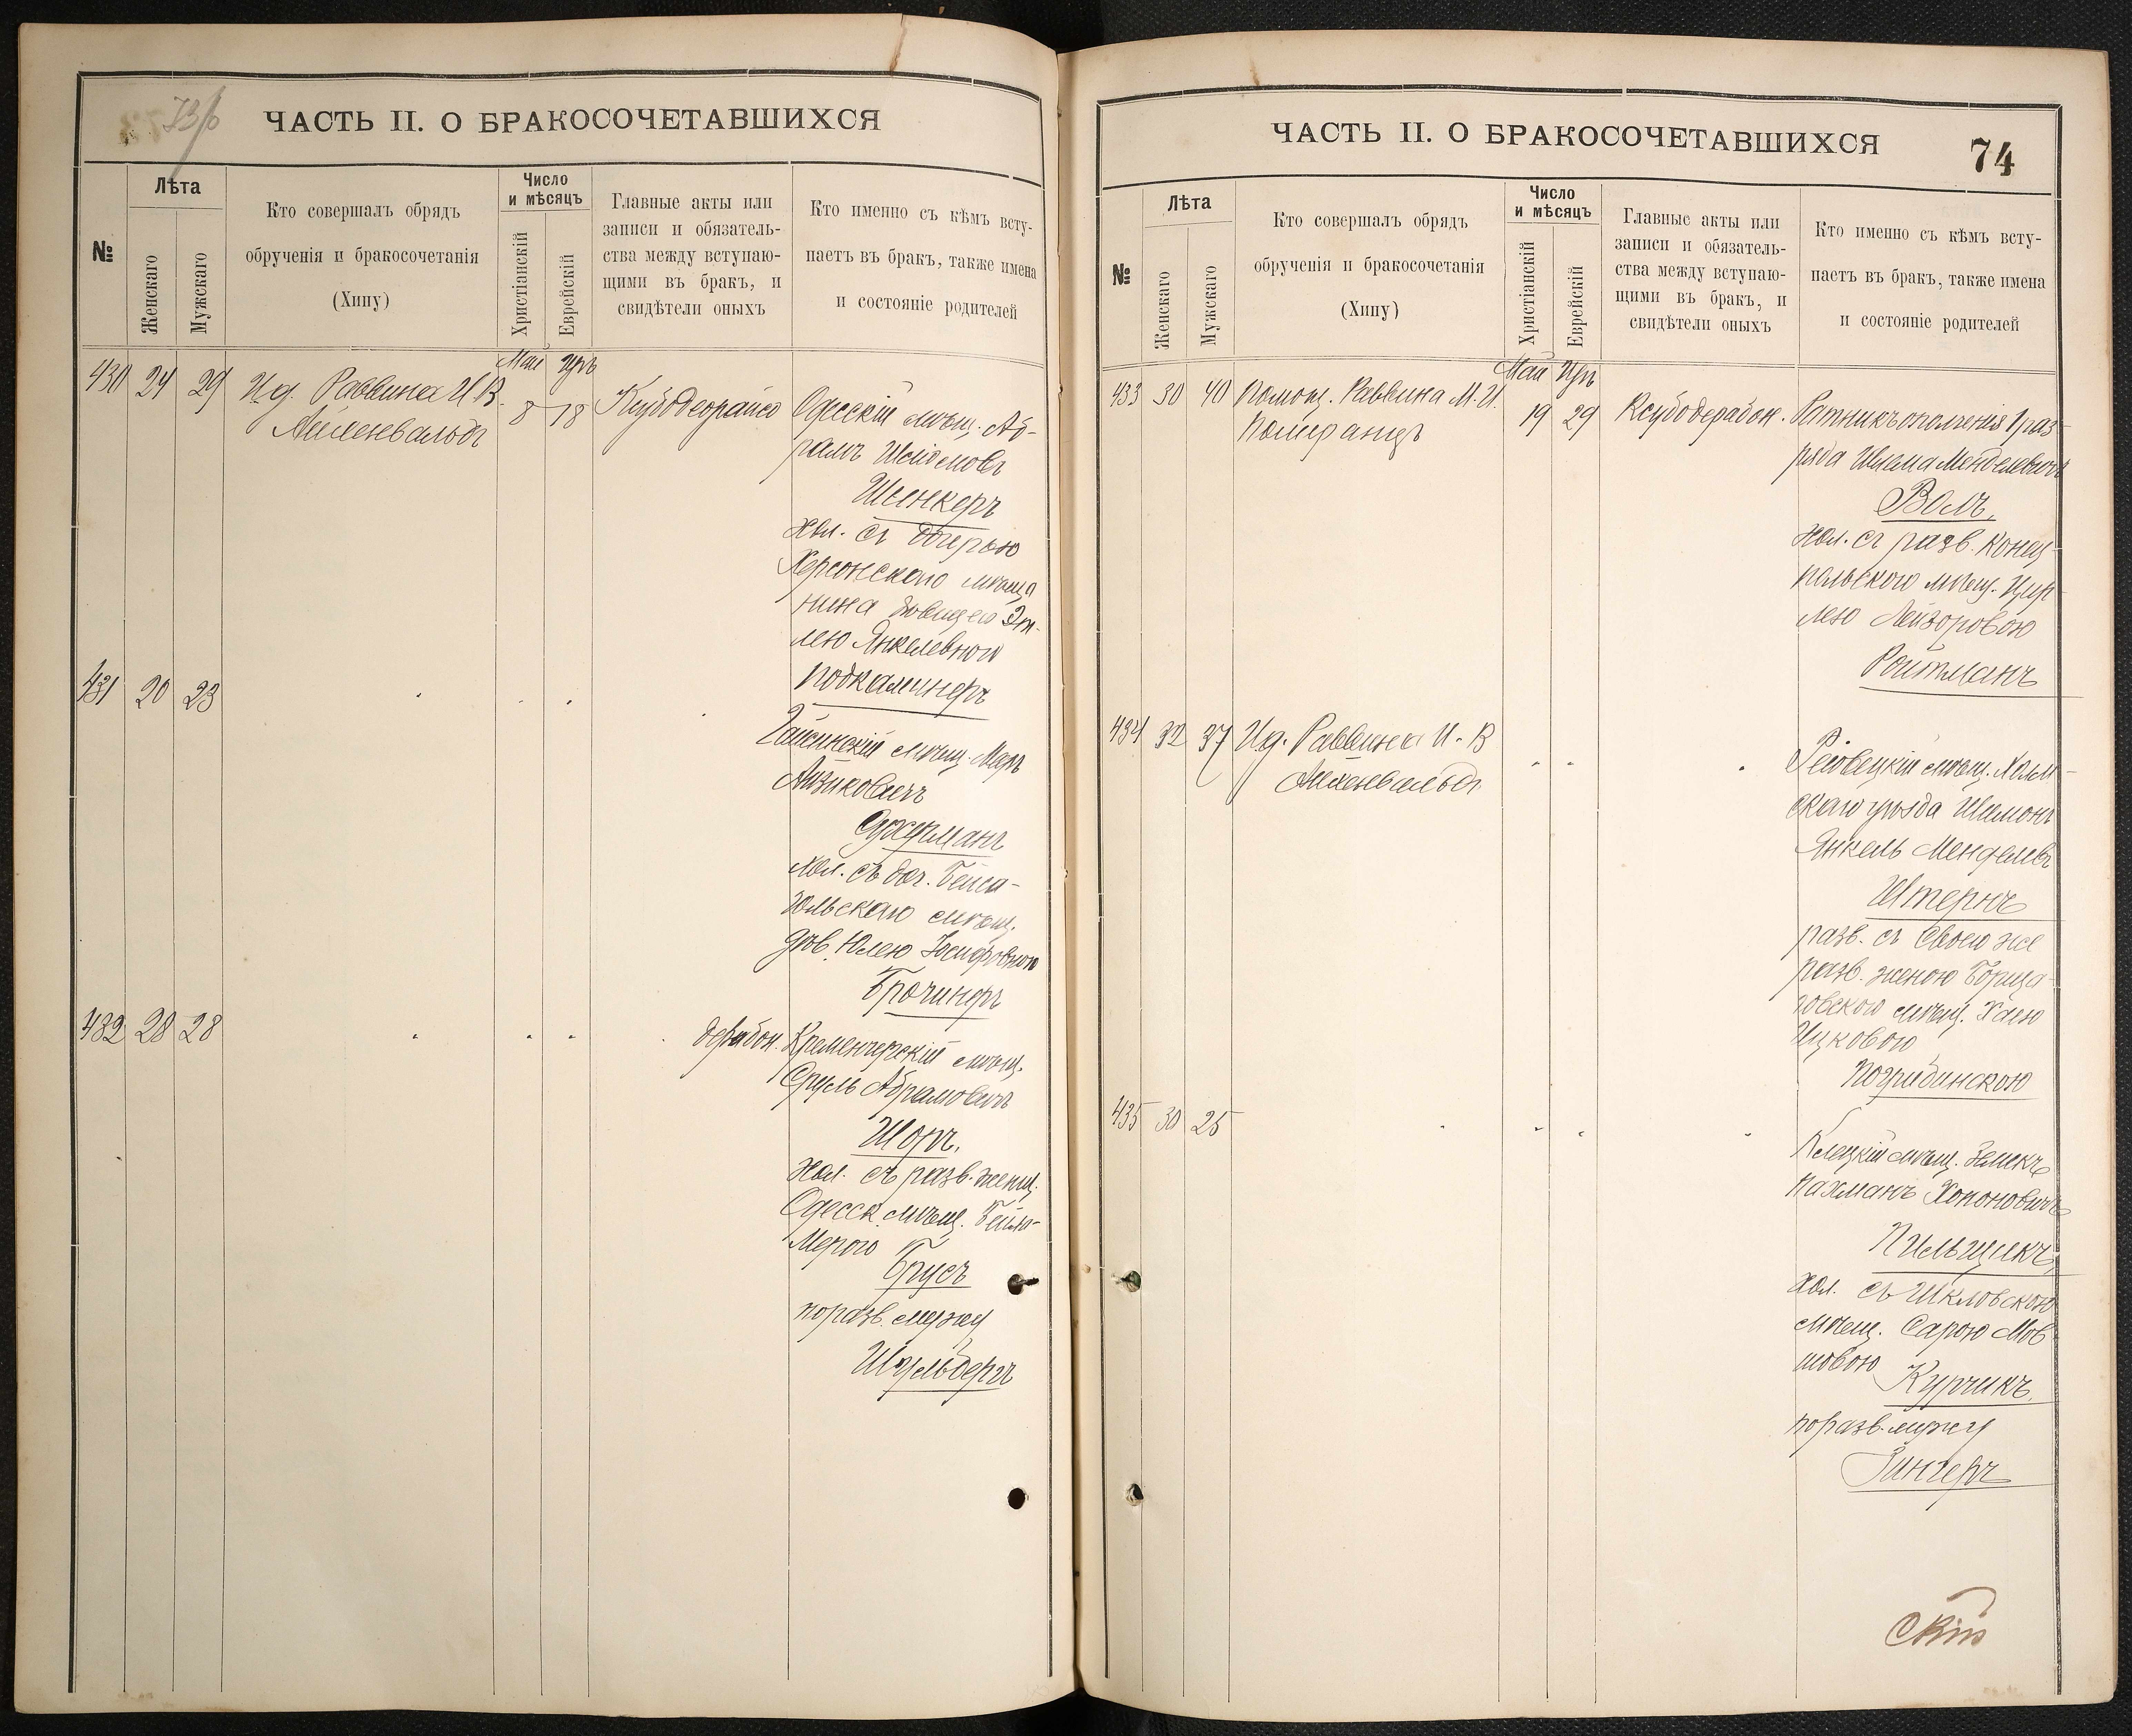 73/б
ЧАСТЬ II. О БРАКОСОЧЕТАВШИХСЯ
№
Лѣта
Женскаго
Мужскаго
Кто совершалъ обрядъ
обрученія и бракосочетанія
(Хипу)
Число
и мѣсяцъ
Христіанскій
Еврейскій
Главные акты или
записи и обязатель-
ства между вступаю-
щими въ бракъ, и
свидѣтели оныхъ
Кто именно съ кѣмъ всту-
паетъ въ бракъ, также имена
и состояніе родителей
Май Иръ
430 24 29 И.д. Раввина И В.
Айхенвальдъ
8 18
Одесскій мѣщ. Аб-
рамъ
Шенкеръ
хол. съ дочерью
Херсонскаго мѣща
нина девицею Эт-
лею Янкелевною
Подкаминеръ
431 20 23
Гайсинскій мѣщ.
Айзиковичъ
хол. съ доч.
мѣщ.
дѣв. Юлею Іосифовною
Брочинеръ
432 28 28
дерабон. Кременчугскій мѣщ.
Сруль Абрамовичъ
Шоръ,
хол. съ разв. женщ.
Одесск. мѣщ. Бейла-
Брусъ
по разв. мужу
Шульбергъ
ЧАСТЬ II. О БРАКОСОЧЕТАВШИХСЯ
74
№
Лѣта
Женскаго
Мужскаго
Кто совершалъ обрядъ
обрученія и бракосочетанія
(Хипу)
Число
и мѣсяцъ
Христіанскій
Еврейскій
Главные акты или
записи и обязатель-
ства между вступаю-
щими въ бракъ, и
свидѣтели оныхъ
Кто именно съ кѣмъ всту-
паетъ въ бракъ, также имена
и состояніе родителей
Май Иръ
433 30 40 Помощ. Раввина М. И.
Померанцъ
19 29 Ксубодерабон.
Ратникъ ополченія 1 раз-
ряда Шлема Менделевичъ
Волъ,
хол. съ разв. Конец-
польскою мѣщ. Цир-
лею Лейзоровою
Ройтманъ
434 32 37 И.д. Раввина И. В
Айхенвальдъ
мѣщ. Холм-
скаго уѣзда Шламонъ
Янкель Менделевъ
Штернъ
разв. съ своею же
разв. женою Борща-
говскою мѣщ. Хаею
Ицковою
Погребинскою
435 30 25
Клецкій мѣщ. Зеликъ
Нахманъ Хононовичъ
Пильщикъ,
хол. съ Шкловскою
мѣщ. Сарою Мов-
шовою
Курчикъ,
по разв. мужу
Зингеръ
скій